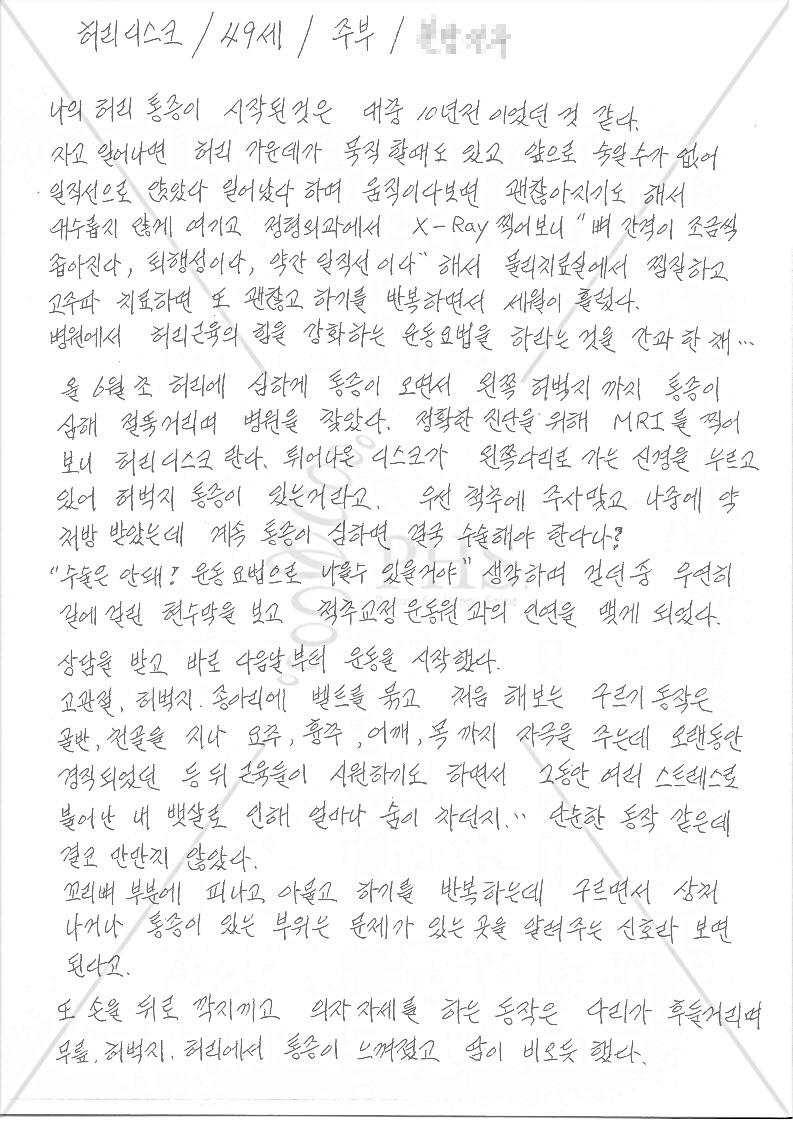 허리디스크 / 49세 / 주부 /
나의 허리 통증이 시작된것은 대충 10년전 이었던 것 같다.
자고 일어나면 허리 가운데가 묵직 할때도 있고 앞으로 숙일수가 없어
일직선으로 앉았다 일어났다 하며 움직이다보면 괜찮아지기도 해서
대수롭지 않게 여기고 정형외과에서 X-Ray 찍어보니 "뼈 간격이 조금씩
좁아진다, 퇴행성이다, 약간 일직선 이다" 해서 물리치료실에서 찜질하고
고주파 치료하면 또 괜찮고 하기를 반복하면서 세월이 흘렀다.
병원에서 허리근육의 힘을 강화하는 운동요법을 하라는 것을 간과 한 채…
올 6월 초 허리에 심하게 통증이 오면서 왼쪽 허벅지 까지 통증이
심해 절뚝거리며 병원을 찾았다. 정확한 진단을 위해 MRI를 찍어
보니 허리디스크 란다. 튀어나온 디스크가 왼쪽다리로 가는 신경을 누르고
있어 허벅지 통증이 있는거라고. 우선 척추에 주사맞고 나중에 약
처방 받았는데 계속 통증이 심하면 결국 수술해야 한다나?
"수술은 안돼! 운동요법으로 나을수 있을거야" 생각하며 걷던중 우연히
길에 걸린 현수막을 보고 척추교정운동원 과의 인연을 맺게 되었다.
상담을 받고 바로 다음날부터 운동을 시작했다.
고관절, 허벅지. 종아리에 벨트를 묶고 처음 해보는 구르기동작은
골반, 천골을 지나 요추, 흉추, 어깨, 목까지 자극을 주는데 오랜동안
경직되었던 등뒤 근육들이 시원하기도 하면서 그동안 여러 스트레스로
불어난 내 뱃살로 인해 얼마나 숨이 차던지… 단순한 동작 같은데
결코 만만지 않았다.
꼬리뼈 부분에 피나고 아물고 하기를 반복하는데 구르면서 상처
나거나 통증이 있는 부위는 문제가 있는 곳을 알려주는 신호라 보면
된다고.
또 손을 뒤로 깍지끼고 의자자세를 하는 동작은 다리가 후들거리며
무릎. 허벅지. 허리에서 통증이 느껴졌고 땀이 비오듯 했다.
DHS